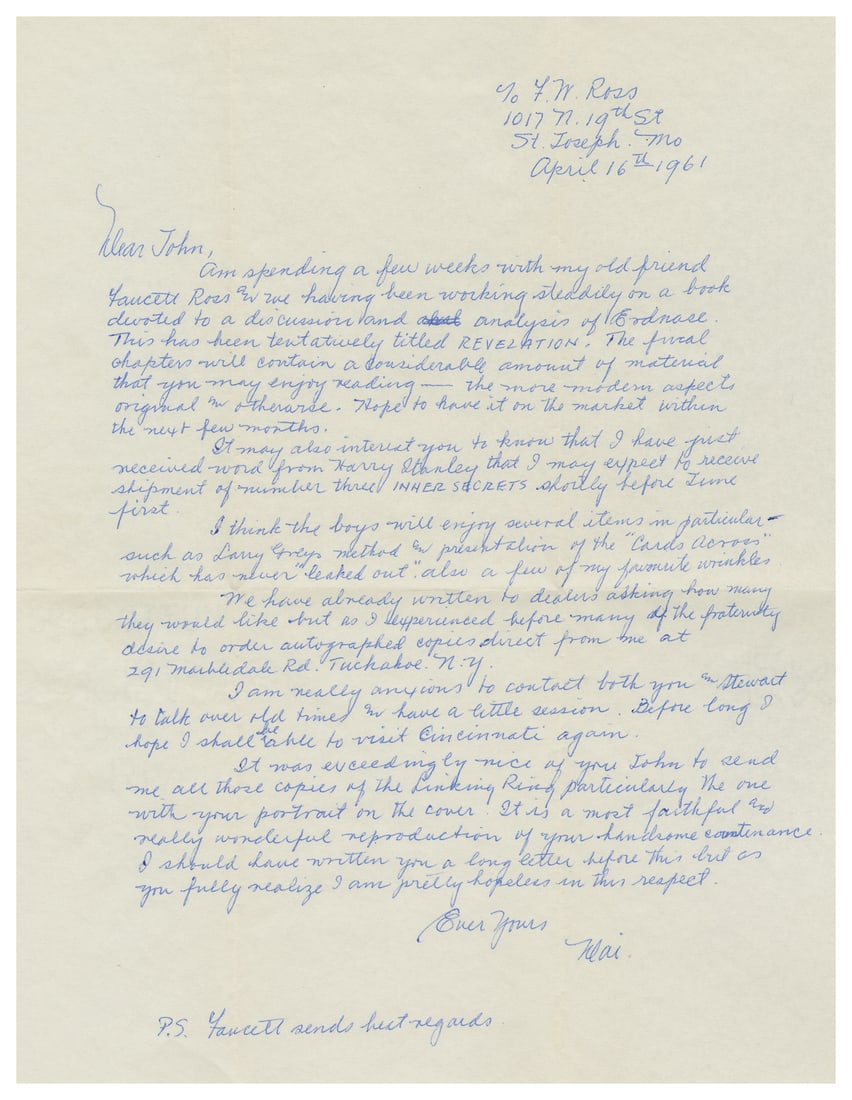 c/o F.W. Ross
1017 N. 19th St
St. Joseph. Mo
April 16th 1961
Dear John,
Am spending a few weeks with my old friend
Faucett Ross and we having been working steadily on a book
devoted to a discussion and analysis of Erdnase.
This has been tentatively titled REVELATION. The final
chapters will contain a considerable amount of material
that you may enjoy reading — the more modern aspects
original and otherwise. Hope to have it on the market within
the next few months.
It may also interest you to know that I have just
received word from Harry Stanley that I may expect to receive
shipment of number three INNER SECRETS shortly before June
first.
I think the boys will enjoy several items in particular –
such as Larry Greys method and presentation of the "Cards Across"
which has never "leaked out". also a few of my favourite wrinkles
We have already written to dealers asking how many
they would like but as I experienced before many of the fraternity
desire to order autographed copies direct from me at
291 Marbledale Rd. Tuckahoe. N.Y.
I am really anxious to contact both you and Stewart
to talk over old times and have a little session. Before long I
hope I shall be able to visit Cincinnati again.
It was exceedingly nice of you John to send
me all those copies of the Linking Ring particularly the one
with your portrait on the cover. It is a most faithful and
really wonderful reproduction of your handsome countenance.
I should have written you a long letter before this but as
you fully realize I am pretty hopeless in this respect.
Ever Yours
Dai.
P.S. Faucett sends best regards.